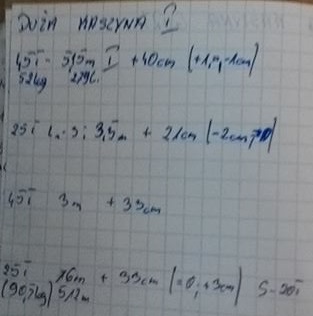 DUŻA MASZYNA I
45T - 515m I +40cm (+1,-1cm)
52kg
25T 3,5m + 21cm (-2cm
45T 3m + 33cm
25T 16m + 33cm (=0; +3cm) S-20T
(90,5kg) 512m